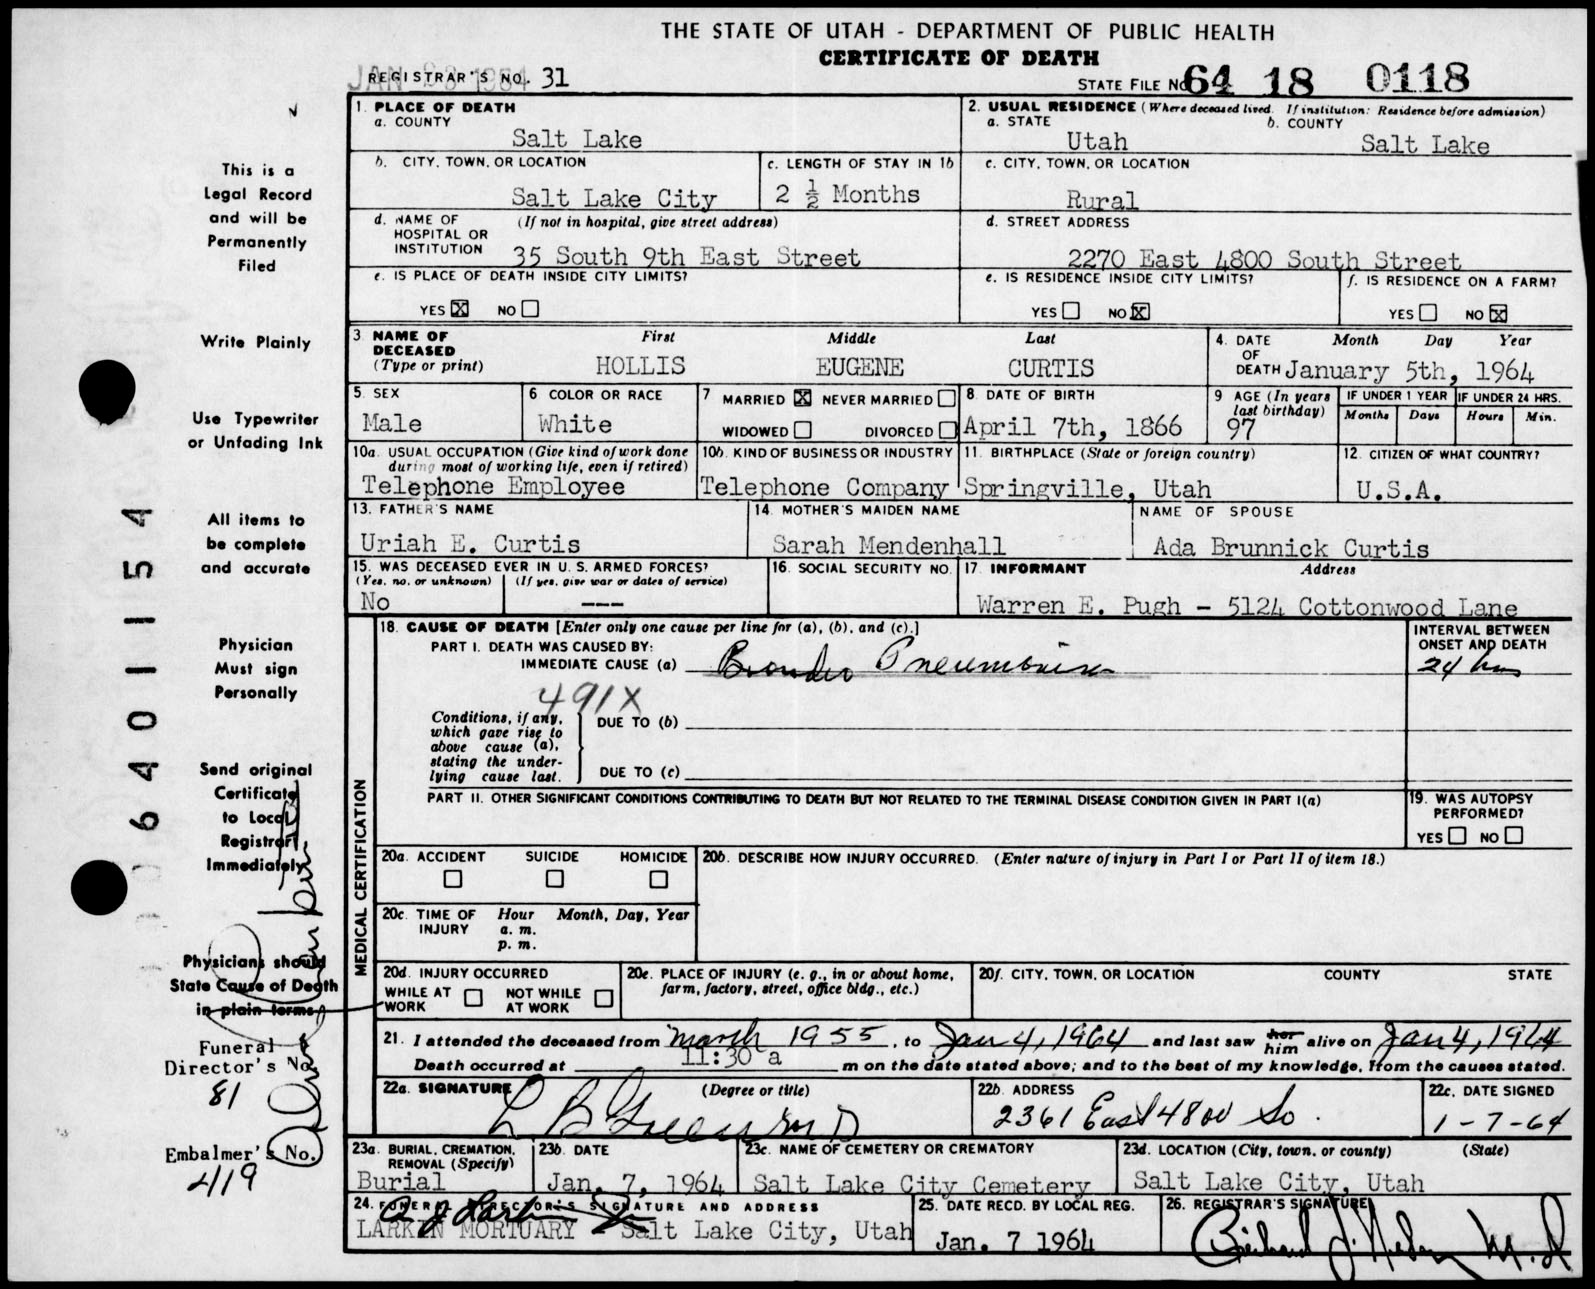 THE STATE OF UTAH - DEPARTMENT OF PUBLIC HEALTH
CERTIFICATE OF DEATH
REGISTRAR'S NO. 31
STATE FILE NO. 64 18 0118
1. PLACE OF DEATH
a. COUNTY
Salt Lake
2. USUAL RESIDENCE (Where deceased lived. If institution: Residence before admission)
a. STATE
Utah
b. COUNTY
Salt Lake
b. CITY, TOWN, OR LOCATION
Salt Lake City
c. LENGTH OF STAY IN 1b
2 ½ Months
c. CITY, TOWN, OR LOCATION
Rural
d. NAME OF HOSPITAL OR INSTITUTION
(If not in hospital, give street address)
35 South 9th East Street
d. STREET ADDRESS
2270 East 4800 South Street
e. IS PLACE OF DEATH INSIDE CITY LIMITS?
YES X NO
e. IS RESIDENCE INSIDE CITY LIMITS?
YES NO X
f. IS RESIDENCE ON A FARM?
YES NO X
3 NAME OF DECEASED (Type or print)
First Middle Last
HOLLIS EUGENE CURTIS
4. DATE OF DEATH
Month Day Year
January 5th, 1964
5. SEX
Male
6 COLOR OR RACE
White
7 MARRIED X NEVER MARRIED
WIDOWED DIVORCED
8. DATE OF BIRTH
April 7th, 1866
9 AGE (In years last birthday)
97
IF UNDER 1 YEAR
Months Days
IF UNDER 24 HRS.
Hours Min.
10a. USUAL OCCUPATION (Give kind of work done during most of working life, even if retired)
Telephone Employee
10b. KIND OF BUSINESS OR INDUSTRY
Telephone Company
11. BIRTHPLACE (State or foreign country)
Springville, Utah
12. CITIZEN OF WHAT COUNTRY?
U.S.A.
13. FATHER'S NAME
Uriah E. Curtis
14. MOTHER'S MAIDEN NAME
Sarah Mendenhall
NAME OF SPOUSE
Ada Brunnick Curtis
15. WAS DECEASED EVER IN U. S. ARMED FORCES?
(Yes, no, or unknown) (If yes, give war or dates of service)
No ---
16. SOCIAL SECURITY NO.
17. INFORMANT Address
Warren E. Pugh - 5124 Cottonwood Lane
MEDICAL CERTIFICATION
18. CAUSE OF DEATH [Enter only one cause per line for (a), (b), and (c).]
INTERVAL BETWEEN ONSET AND DEATH
PART I. DEATH WAS CAUSED BY:
IMMEDIATE CAUSE (a) Broncho Pneumonia
24 hrs
491X
Conditions, if any, which gave rise to above cause (a), stating the underlying cause last.
DUE TO (b)
DUE TO (c)
PART II. OTHER SIGNIFICANT CONDITIONS CONTRIBUTING TO DEATH BUT NOT RELATED TO THE TERMINAL DISEASE CONDITION GIVEN IN PART I(a)
19. WAS AUTOPSY PERFORMED?
YES NO
20a. ACCIDENT SUICIDE HOMICIDE
20b. DESCRIBE HOW INJURY OCCURRED. (Enter nature of injury in Part I or Part II of item 18.)
20c. TIME OF INJURY
Hour Month, Day, Year
a. m.
p. m.
20d. INJURY OCCURRED
WHILE AT WORK NOT WHILE AT WORK
20e. PLACE OF INJURY (e. g., in or about home, farm, factory, street, office bldg., etc.)
20f. CITY, TOWN, OR LOCATION COUNTY STATE
21. I attended the deceased from March 1955, to Jan 4, 1964 and last saw her him alive on Jan 4, 1964
Death occurred at 11:30 a m on the date stated above; and to the best of my knowledge, from the causes stated.
22a. SIGNATURE (Degree or title)
22b. ADDRESS
2361 East 4800 So.
22c. DATE SIGNED
1-7-64
23a. BURIAL, CREMATION, REMOVAL (Specify)
Burial
23b. DATE
Jan. 7, 1964
23c. NAME OF CEMETERY OR CREMATORY
Salt Lake City Cemetery
23d. LOCATION (City, town, or county) (State)
Salt Lake City, Utah
24. FUNERAL DIRECTOR'S SIGNATURE AND ADDRESS
LARKIN MORTUARY - Salt Lake City, Utah
25. DATE RECD. BY LOCAL REG.
Jan. 7 1964
26. REGISTRAR'S SIGNATURE
This is a
Legal Record
and will be
Permanently
Filed
Write Plainly
Use Typewriter
or Unfading Ink
All items to
be complete
and accurate
Physician
Must sign
Personally
Send original
Certificate
to Local
Registrar
Immediately
Physicians should
State Cause of Death
in plain terms
Funeral
Director's No.
81
Embalmer's No.
419
06401154